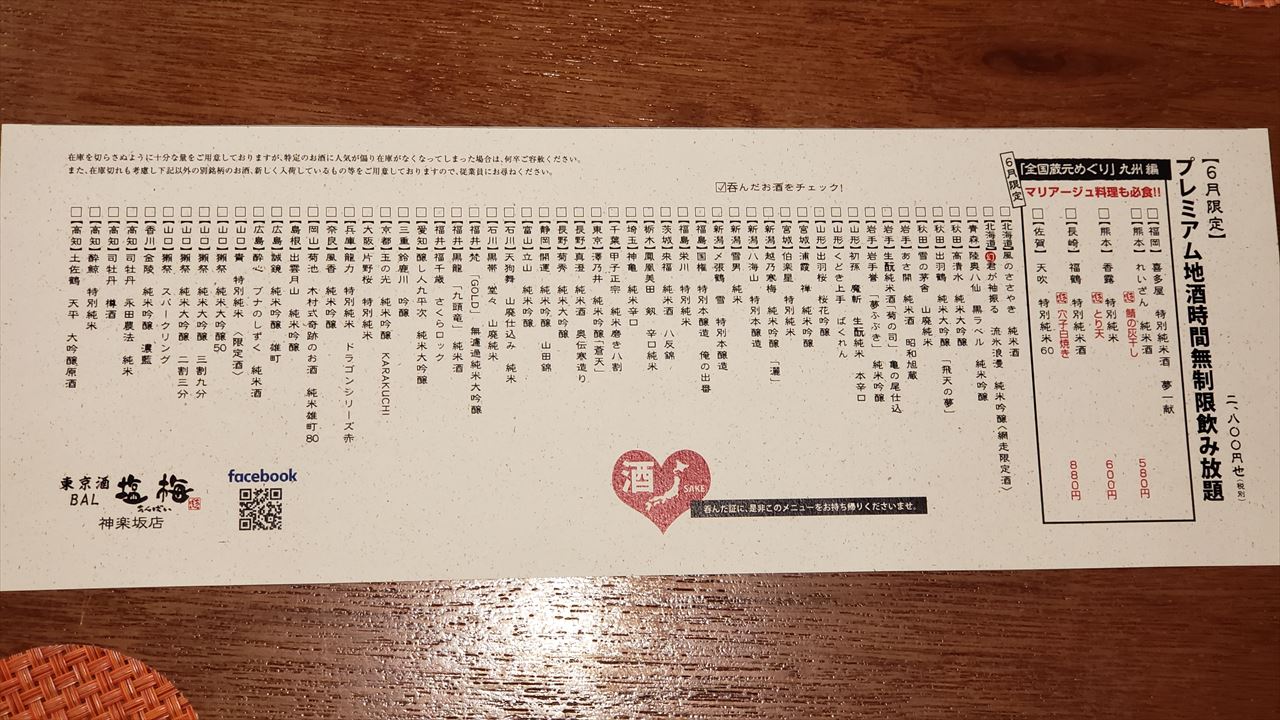 【6月限定】
プレミアム地酒時間無制限飲み放題
二、八〇〇円也（税別）
6月限定
「全国蔵元めぐり」九州編
マリアージュ料理も必食!!
□【福岡】喜多屋 特別純米酒 夢一献
□【熊本】れいざん 純米酒
鯖の灰干し 580円
□【熊本】香露 特別純米
とり天 600円
□【長崎】福鶴 特別純米酒
穴子白焼き 880円
□【佐賀】天吹 特別純米 60
☑呑んだお酒をチェック!
□【北海道】風のささやき 純米酒
□【北海道】幻 君が袖振る 流氷浪漫 純米吟醸〈網走限定酒〉
□【青森】陸奥八仙 黒ラベル 純米吟醸
□【秋田】高清水 純米大吟醸
□【秋田】出羽鶴 純米大吟醸「飛天の夢」
□【秋田】雪の茅舎 山廃純米
□【岩手】あさ開 純米酒 昭和旭蔵
□【岩手】生酛純米酒 菊の司 亀の尾仕込
□【岩手】岩手誉「夢ふぶき」純米吟醸
□【山形】初孫 魔斬 生酛純米 本辛口
□【山形】くどき上手 ばくれん
□【山形】出羽桜 桜花吟醸
□【宮城】浦霞 禅 純米吟醸
□【宮城】伯楽星 特別純米
□【新潟】越乃寒梅 純米吟醸「灑」
□【新潟】八海山 特別本醸造
□【新潟】雪男 純米
□【新潟】〆張鶴 雪 特別本醸造
□【福島】国権 特別本醸造 俺の出番
□【福島】栄川 特別純米
□【茨城】来福 純米酒 八反錦
□【栃木】鳳凰美田 剱 辛口純米
□【埼玉】神亀 純米辛口
□【千葉】甲子正宗 純米磨き八割
□【東京】澤乃井 純米吟醸「蒼天」
□【長野】真澄 純米酒 奥伝寒造り
□【長野】菊秀 純米吟醸
□【静岡】開運 純米吟醸 山田錦
□【富山】立山 純米吟醸
□【石川】天狗舞 山廃仕込み 純米
□【石川】黒帯 堂々 山廃純米
□【福井】梵「GOLD」無濾過純米大吟醸
□【福井】黒龍「九頭竜」純米酒
□【福井】福千歳 さくらロック
□【愛知】醸し人九平次 純米大吟醸
□【三重】鈴鹿川 吟醸
□【京都】玉の光 純米吟醸 KARAKUCHI
□【大阪】片野桜 特別純米
□【兵庫】龍力 特別純米 ドラゴンシリーズ赤
□【奈良】風香 純米吟醸
□【岡山】菊池 木村式奇跡のお酒 純米雄町80
□【島根】出雲月山 純米吟醸
□【広島】誠鏡 純米吟醸 雄町
□【広島】酔心 ブナのしずく 純米酒
□【山口】貴 特別純米〈限定酒〉
□【山口】獺祭 純米大吟醸50
□【山口】獺祭 純米大吟醸 三割九分
□【山口】獺祭 純米大吟醸 二割三分
□【山口】獺祭 スパークリング
□【香川】金陵 純米吟醸 濃藍
□【高知】司牡丹 永田農法 純米
□【高知】司牡丹 樽酒
□【高知】酔鯨 特別純米
□【高知】土佐鶴 天平 大吟醸原酒
在庫を切らさぬように十分な量をご用意しておりますが、特定のお酒に人気が偏り在庫がなくなってしまった場合は、何卒ご容赦ください。
また、在庫切れも考慮し下記以外の別銘柄のお酒、新しく入荷しているもの等をご用意しておりますので、従業員にお尋ねください。
酒
SAKE
呑んだ証に、是非このメニューをお持ち帰りくださいませ。
facebook
東京酒BAL 塩梅
あんばい
神楽坂店